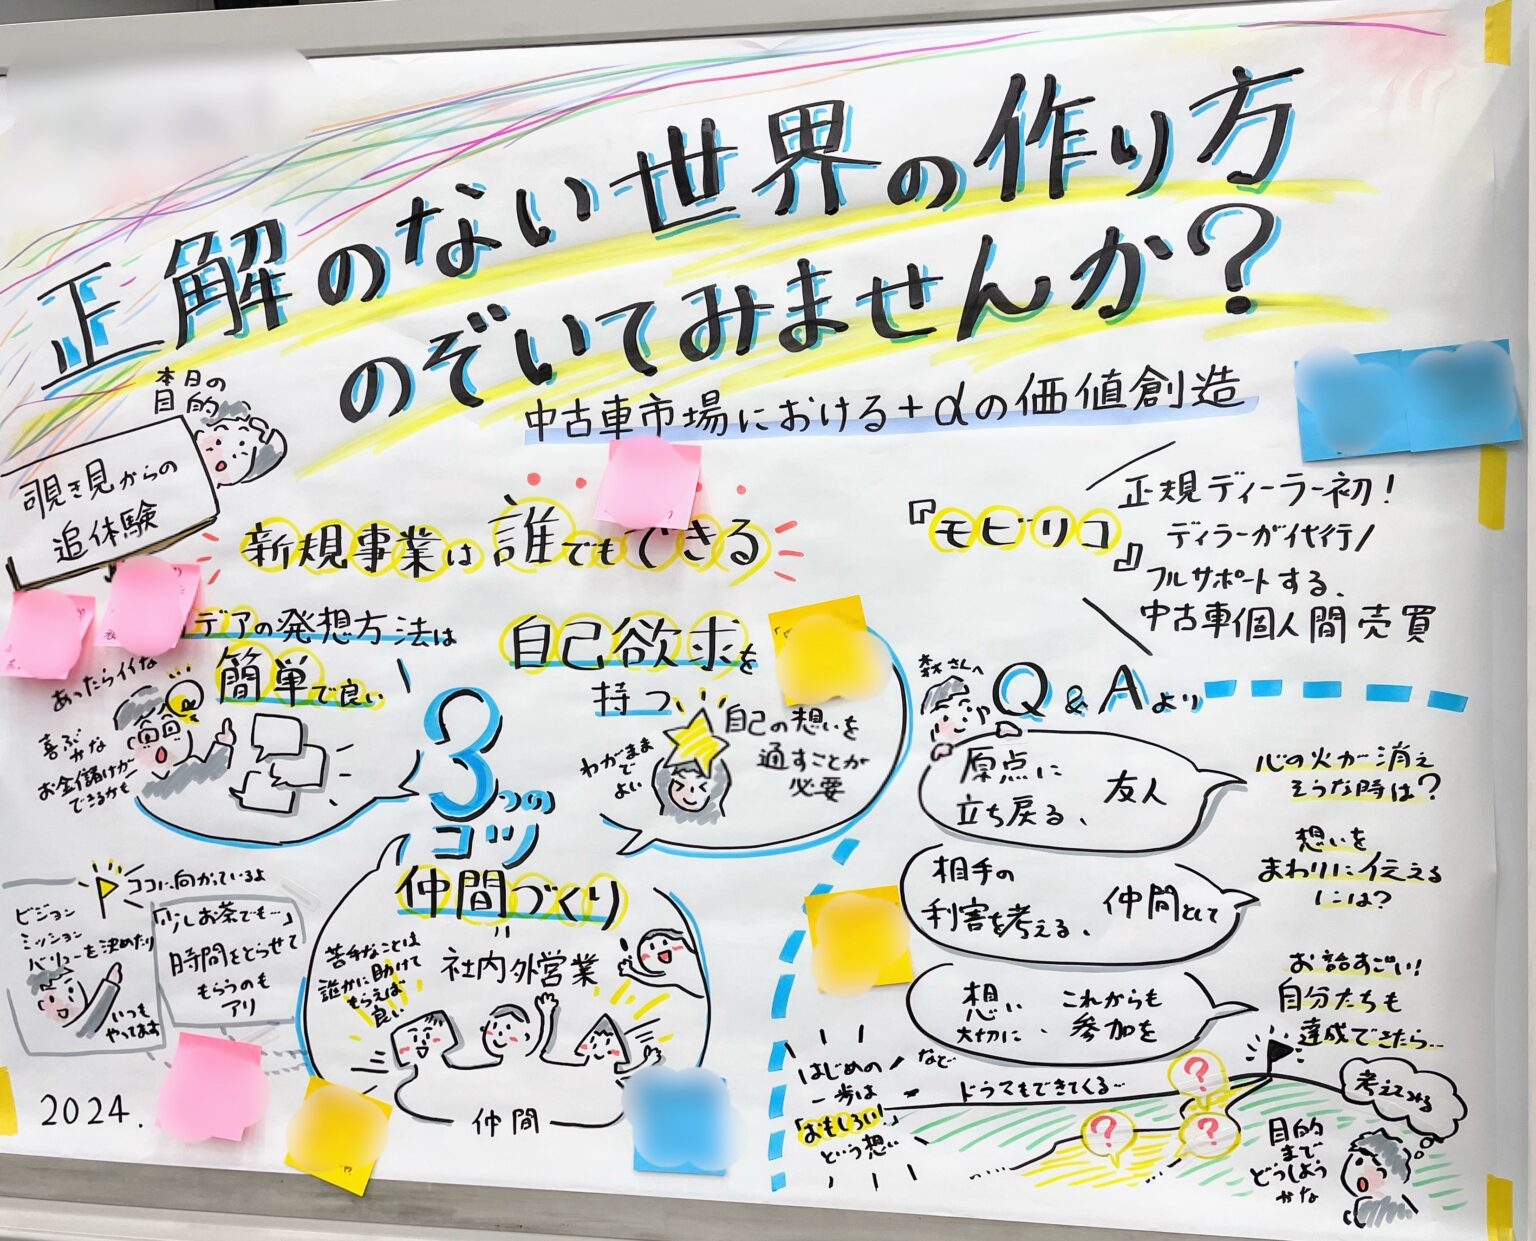 正解のない世界の作り方
のぞいてみませんか?
中古車市場における+αの価値創造
本日の
目的
覗き見からの
追体験
新規事業は誰でもできる
デアの発想方法は
簡単で良い
あったらイイな
喜ぶかな
お金儲けが
できるかも
自己欲求を
持つ
わがまま
で
よい
自己の想いを
通すことが
必要
3つの
コツ
仲間づくり
社内外営業
苦手なことは
誰かに助けて
もらえば
良い
仲間
ココに向かっているよ
ビジョン
ミッション
バリューを決めたり
いつも
やってます
「少しお茶でも…」
時間をとらせて
もらうのも
アリ
2024.
『モビリコ』
正規ディーラー初!
ディラーが代行/
フルサポートする、
中古車個人間売買
森さんへ
Q&Aより
原点に
立ち戻る、
友人
心の火が消え
そうな時は?
相手の
利害を考える、
仲間として
想いを
まわりに伝える
には?
想い
大切に、
これからも
参加を
お話すごい!
自分たちも
達成できたら…
はじめの
一歩は
「おもしろい!」
という想い
など
ドラマもできてくる…
?
?
?
目的
まで
どうしよう
かな
考えてみる